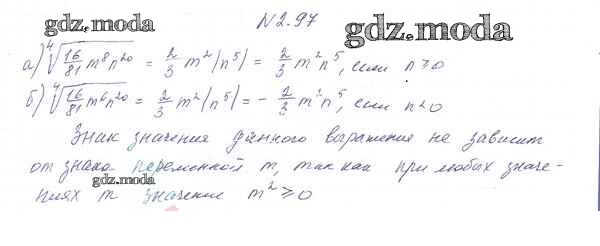 N 2.97
gdz.moda
gdz.moda
а) ⁴√(16/81 m⁸n²⁰) = 2/3 m²|n⁵| = 2/3 m²n⁵, если n ≥ 0
б) ⁴√(16/81 m⁶n²⁰) = 2/3 m²|n⁵| = - 2/3 m²n⁵, если n < 0
Знак значения данного выражения не зависит
от знака переменной m, так как при любых значе-
ниях m значение m² ≥ 0
gdz.moda